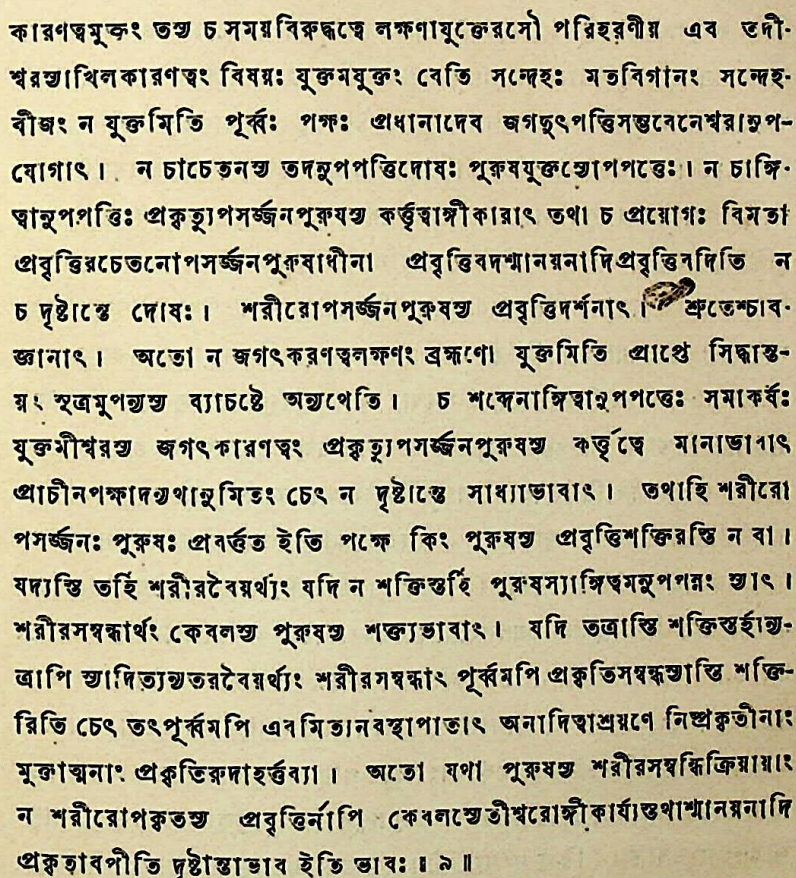 কারণত্বমুক্তং তস্য চ সময়বিরুদ্ধত্বে লক্ষণাযুক্তেরসৌ পরিহরণীয় এব তদী-
শ্বরস্যাখিলকারণত্বং বিষয়ঃ যুক্তমযুক্তং বেতি সন্দেহঃ মতবিগানং সন্দেহ-
বীজং ন যুক্তমিতি পূর্ব্বঃ পক্ষঃ প্রধানাদেব জগদুৎপত্তিসম্ভবেনেশ্বরানুপ-
যোগাৎ। ন চাচেতনস্য তদনুপপত্তিদোষঃ পুরুষযুক্তস্যোপপত্তেঃ। ন চাঙ্গি-
ত্বানুপপত্তিঃ প্রকৃত্যুপসর্জ্জনপুরুষস্য কর্ত্তৃত্বাঙ্গীকারাৎ তথা চ প্রয়োগঃ বিমতা
প্রবৃত্তিরচেতনোপসর্জ্জনপুরুষাধীনা প্রবৃত্তিবদশ্মানয়নাদিপ্রবৃত্তিবদিতি ন
চ দৃষ্টান্তে দোষঃ। শরীরোপসর্জ্জনপুরুষস্য প্রবৃত্তিদর্শনাৎ। শ্রুতেশ্চাব-
জ্ঞানাৎ। অতো ন জগৎকরণত্বলক্ষণং ব্রহ্মণো যুক্তমিতি প্রাপ্তে সিদ্ধান্ত-
য়ং সূত্রমুপন্যস্য ব্যাচষ্টে অন্যথেতি। চ শব্দেনাঙ্গিত্বানুপপত্তেঃ সমাকর্ষঃ
যুক্তমীশ্বরস্য জগৎকারণত্বং প্রকৃত্যুপসর্জ্জনপুরুষস্য কর্ত্তৃত্বে মানাভাবাৎ
প্রাচীনপক্ষাদন্যথানুমিতং চেৎ ন দৃষ্টান্তে সাধ্যাভাবাৎ। তথাহি শরীরো
পসর্জ্জনঃ পুরুষঃ প্রবর্ত্তত ইতি পক্ষে কিং পুরুষস্য প্রবৃত্তিশক্তিরস্তি ন বা।
যদ্যস্তি তর্হি শরীরবৈয়র্থ্যং যদি ন শক্তিস্তর্হি পুরুষস্যাঙ্গিত্বমনুপপন্নং স্যাৎ।
শরীরসম্বন্ধার্থং কেবলস্য পুরুষস্য শক্ত্যভাবাৎ। যদি তত্রাস্তি শক্তিস্তর্হ্যন্য-
ত্রাপি স্যাদিত্যন্যতরবৈয়র্থ্যং শরীরসম্বন্ধাৎ পূর্ব্বমপি প্রকৃতিসম্বন্ধস্যাস্তি শক্তি-
রিতি চেৎ তৎপূর্ব্বমপি এবমিত্যনবস্থাপাতাৎ অনাদিত্বাশ্রয়ণে নিষ্প্রকৃতীনাং
মুক্তাত্মনাং প্রকৃতিরুদাহর্ত্তব্যা। অতো যথা পুরুষস্য শরীরসম্বন্ধিক্রিয়ায়াং
ন শরীরোপকৃতস্য প্রবৃত্তির্নাপি কেবলস্যেতীশ্বরোঙ্গীকার্য্যস্তথাশ্মানয়নাদি
প্রকৃতাবপীতি দৃষ্টান্তাভাব ইতি ভাবঃ॥ ৯॥